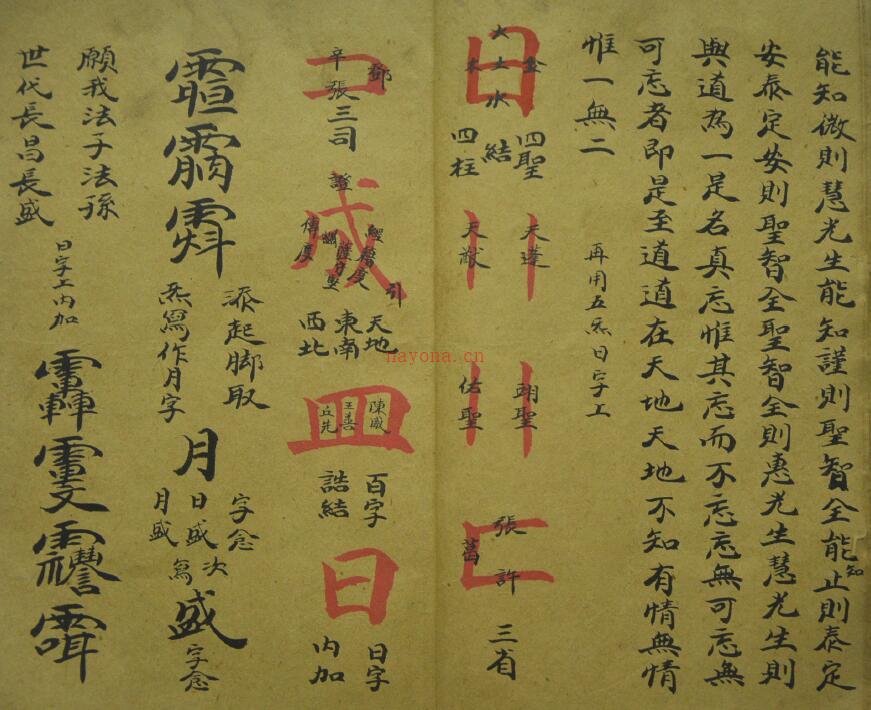 能知微則慧光生能知謹則聖智全能知止則泰定
安泰定安則聖智全聖智全則惠光生慧光生則
與道為一是名真忘惟其忘而不忘忘無可忘無
可忘者即是至道道在天地天地不知有情無情
惟一無二
再用五炁日字上
日
火
木 土 金
水
四聖
結
四柱
天蓬
天猷
翊聖
佑聖
匚
張 許
葛
三省
コ
鄧
辛
張
三司
成
證
引
天地
東南
西北
皿
陳咸
王善
丘先
百字
誥結
日
日字
內加
添起脚取
炁寫作月字
月
字念
日盛次
月盛寫
盛
字念
願我法子法孫
世代長昌長盛
日字上內加
nayona.cn